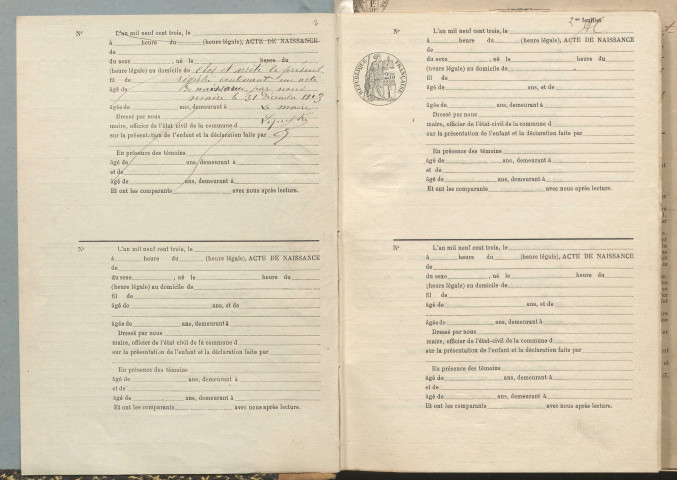 2
N° L'an mil neuf cent trois, le
à heure du (heure légale), ACTE DE NAISSANCE
de
du sexe , né le heure du
(heure légale) au domicile de clos et arrêté le présent
fil de registre contenant un acte
âgé de de naissance par nous
maire le 31 Décembre 1903
âgés de ans, demeurant à Le maire
Dressé par nous
maire, officier de l'état-civil de la commune d
sur la présentation de l'enfant et la déclaration faite par
En présence des témoins
âgé de ans, demeurant à
et de
âgé de ans, demeurant à
Et ont les comparants avec nous après lecture.
N° L'an mil neuf cent trois, le
à heure du (heure légale), ACTE DE NAISSANCE
de
du sexe , né le heure du
(heure légale) au domicile de
fil de
âgé de ans, et de
âgés de ans, demeurant à
Dressé par nous
maire, officier de l'état-civil de la commune d
sur la présentation de l'enfant et la déclaration faite par
En présence des témoins
âgé de ans, demeurant à
et de
âgé de ans, demeurant à
Et ont les comparants avec nous après lecture.
2me feuillet
RÉPUBLIQUE FRANÇAISE
N° L'an mil neuf cent trois, le
à heure du (heure légale), ACTE DE NAISSANCE
de
du sexe , né le heure du
(heure légale) au domicile de
fil de
âgé de ans, et de
âgés de ans, demeurant à
Dressé par nous
maire, officier de l'état-civil de la commune d
sur la présentation de l'enfant et la déclaration faite par
En présence des témoins
âgé de ans, demeurant à
et de
âgé de ans, demeurant à
Et ont les comparants avec nous après lecture.
N° L'an mil neuf cent trois, le
à heure du (heure légale), ACTE DE NAISSANCE
de
du sexe , né le heure du
(heure légale) au domicile de
fil de
âgé de ans, et de
âgés de ans, demeurant à
Dressé par nous
maire, officier de l'état-civil de la commune d
sur la présentation de l'enfant et la déclaration faite par
En présence des témoins
âgé de ans, demeurant à
et de
âgé de ans, demeurant à
Et ont les comparants avec nous après lecture.